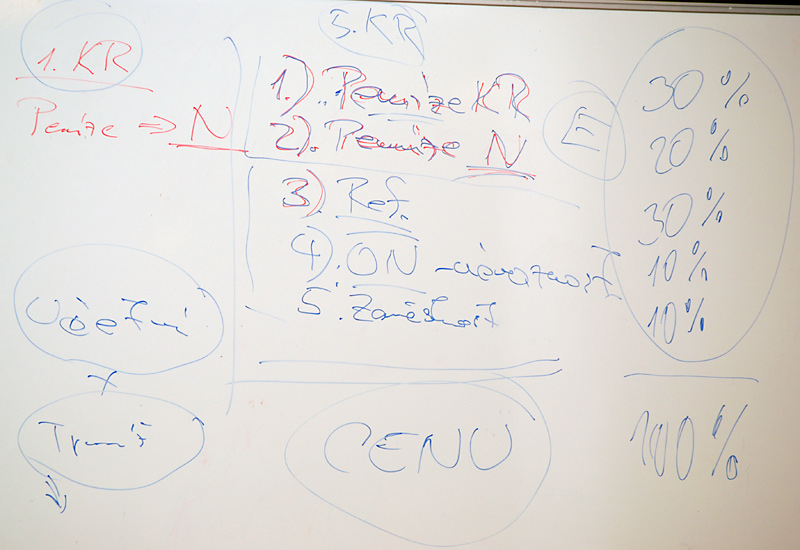 1. KR
Peníze ⇒ N
3. KR
1.) Peníze KR
2). Peníze N
3) Ref.
4). ON - návratnost
5. Zaměstnanost
EI
30 %
20 %
30 %
10 %
10 %
100 %
Účetní
x
CENU